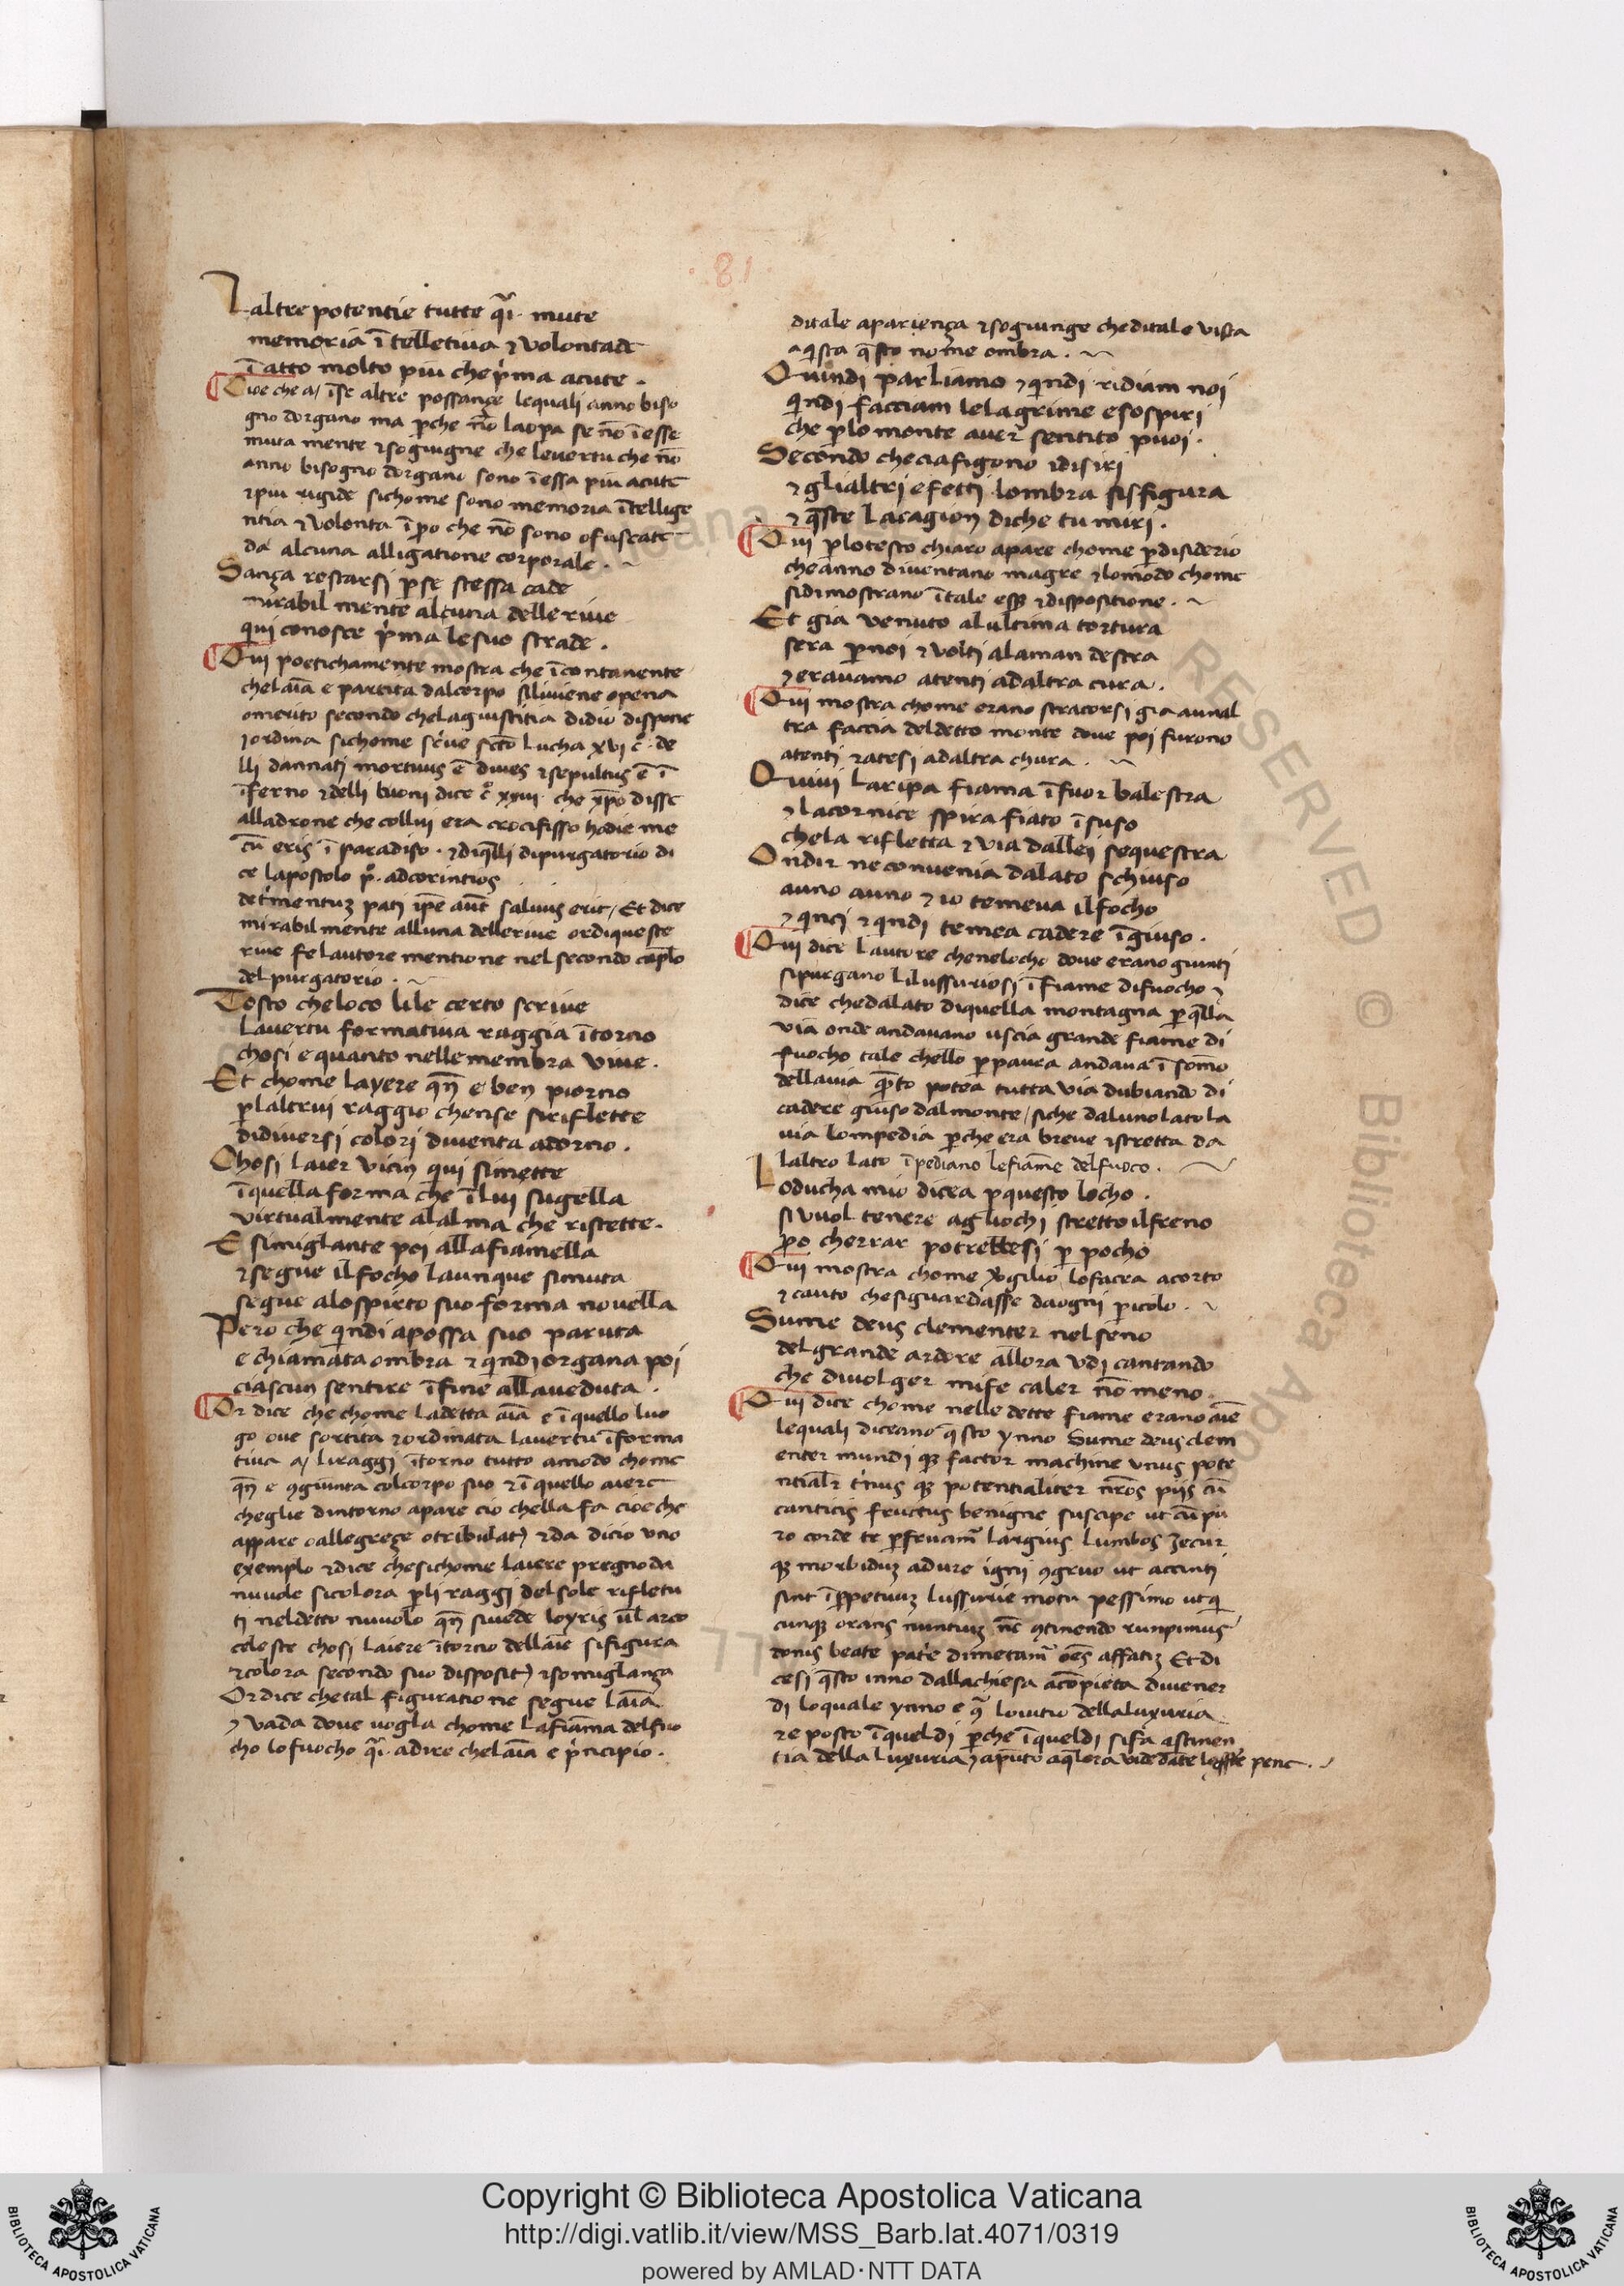 81
Laltre potentie tutte q̃i mute
memoria ĩtelletiva ⁊ volontade
ĩ atto molto piu che p̓ma acute.
Cioe che a ĩse altre possançe lequali anno biso
gno dorgano ma p̱che nō laopa se nō ĩesse
muta mente ⁊ sogiugne che levertu che nō
anno bisogno dorgano sono ĩessa piu acute
⁊ piu rigide sichome sono memoria ĩtellige
ntia ⁊ volonta ĩp̱o che nō sono ofuscate
da alcuna alligatione corporale.
Sança restarsi p̱se stessa cade
mirabil mente alcuna delle rive
qui conosce p̓ma lesuo strade.
Qui poetichamente mostra che ĩcontanente
chelaĩa e partita dalcorpo siliviene opena
omerito secondo chelagiustitia didio dispone
⁊ordina sichome sc̓ve sc̃to Lucha xvi c̊. de
lli dannati mortuus ē dives ⁊sepultus ē ĩ
ĩferno ⁊delli buoni dice c̊ xxiii che xp̄o disse
alladrone che collui era crocifisso hodie me
cū eris ĩ paradiso. ⁊diq̄lli dipurgatorio di
ce lapostolo p̊. adcorintios
det̓mentuʒ pati ip̄e aut̄ salvus erit / Et dice
mirabilmente alluna dellerive ordiqueste
rive fe lautore mentione nel secondo cap̄lo
del purgatorio.
Tosto cheloco lile certo scrive
Lavertu formativa raggia ĩtorno
chosi e quanto nelle membra vive.
Et chome layere qn̄ e ben piorno
p̱laltrui raggio chense siriflette
didiversi colori diventa adorno.
Chosi laier vicin qui simette
ĩquella forma che ĩlui sugella
virtualmente alalma che ristette.
E simiglante poi allafiamella
⁊segue ilfocho launque simuta
segue alospirto suo forma novella
Pero che q̓ndi apossa suo paruta
e chiamata ombra ⁊ q̓ndi organa poi
ciascun sentire ĩfine allaveduta.
Or dice che chome ladetta aĩa e ĩquello luo
go ove sortita ⁊ordinata lavertu ĩforma
tiva a liraggi ĩtorno tutto amodo chome
qn̄ e ꝯgiunta colcorpo suo ⁊ĩ quello aiere
cheglie dintorno apare cio chella fa cioe che
appare oallegreçe otribulat̄ ⁊da dicio uno
exemplo ⁊dice chesichome laiere pregnoda
nuvole sicolora p̱li raggi delsole rifletu
ti neldetto nuvolo qn̄ sivede loyris ul̄ arco
celeste chosi laiere ĩtorno dellaĩe sifigura
⁊colora secondo suo disposit̄ ⁊somiglança
Or dice chetal figuratione segue laĩa
⁊ vada dove vogla chome lafiāma delfuo
cho lofuocho q̃i. adire chelaĩa e p̓ncipio.
ditale apariença ⁊sogiunge cheditale vista
aq̓sta q̄sto nome ombra.
Quindi parliamo ⁊q̓ndi ridiam noi
q̓ndi facciam lelagrime esospiri
che p̱lo monte aver sentito puoi.
Secondo checiafigono idisiri
⁊ glialtri efetti lombra sisfigura
⁊ q̄ste laragion diche tu miri.
Qui p̱lotesto chiaro apare chome p̱disiderio
cheanno diventano magre ⁊lomodo chome
sidimostrano ĩtale esse ⁊dispositione.
Et gia venuto alultima tortura
sera p̱noi ⁊ volti alaman destra
⁊eravamo atenti adaltra cura.
Qui mostra chome erano stracorsi gia aunal
tra faccia deldetto monte dove poi furono
atenti ⁊atesi adaltra chura.
Quivi laripa fiama ĩfuor balestra
⁊ lacornice spira fiato ĩsuso
chela rifletta ⁊ via dallei sequestra
Ondir ne convenia dalato schiuso
auno auno ⁊ io temeva ilfocho
⁊ q̓nci ⁊ q̓ndi temea cadere ĩgiuso.
Qui dice lautore chenelocho dove erano giunti
sipurgano lilussuriosi ĩfiame difuocho ⁊
dice chedalato diquella montagna p̱q̄lla
via onde andavano uscia grande fiame di
fuocho tale chello p̱paura andava ĩ somo
dellavia q̄to potea tutta via dubiando di
cadere giuso dalmonte / siche daluno lato la
via lompedia p̱che era breve ⁊stretta da
llaltro lato ĩpediano lefiāme delfuoco.
Loducha mio dicea p̱questo locho.
si vuol tenere agliochi stretto ilfreno
p̱o cherrar potrebbesi p̱ pocho
Qui mostra chome v̓gilio lofacea acorto
⁊ cauto chesiguardasse daogni p̱icolo.
Sume deus clementer nelseno
del grande ardore allora udi cantando
che divolger mife caler nō meno.
Qui dice chome nelle dette fiame erano aĩe
lequali diceano q̄sto ynno Sume deus clem
enter mundi q̧ factor machine unus pote
ntialr̄ t̓nus q̧ potentialiter nr̄os piis cū
canticis fructus benigne suscipe ut cū pu
ro corde te p̱fruamr̄ largius Lumbos Jecur
q̧ morbiduʒ adure igni ꝯgruo ut accinti
sint ĩp̱petuuʒ lussurie motu pessimo ut q̓
cunq̧ oras nuntiuʒ nc̄ ꝯtinendo runpimus
donis beate pat̓e dimetamr̄ oēs affatiʒ Et di
cesi q̄sto inno dallachiesa acōpieta divener
di loquale ynno e ꝯ̃ lovitio dellaluxuria
⁊e posto ĩqueldi p̱che ĩqueldi sifa astinen
tia della luxuria ⁊
Copyright © Biblioteca Apostolica Vaticana
http://digi.vatlib.it/view/MSS_Barb.lat.4071/0319
powered by AMLAD·NTT DATA
BIBLIOTECA APOSTOLICA VATICANA
BIBLIOTECA APOSTOLICA VATICANA